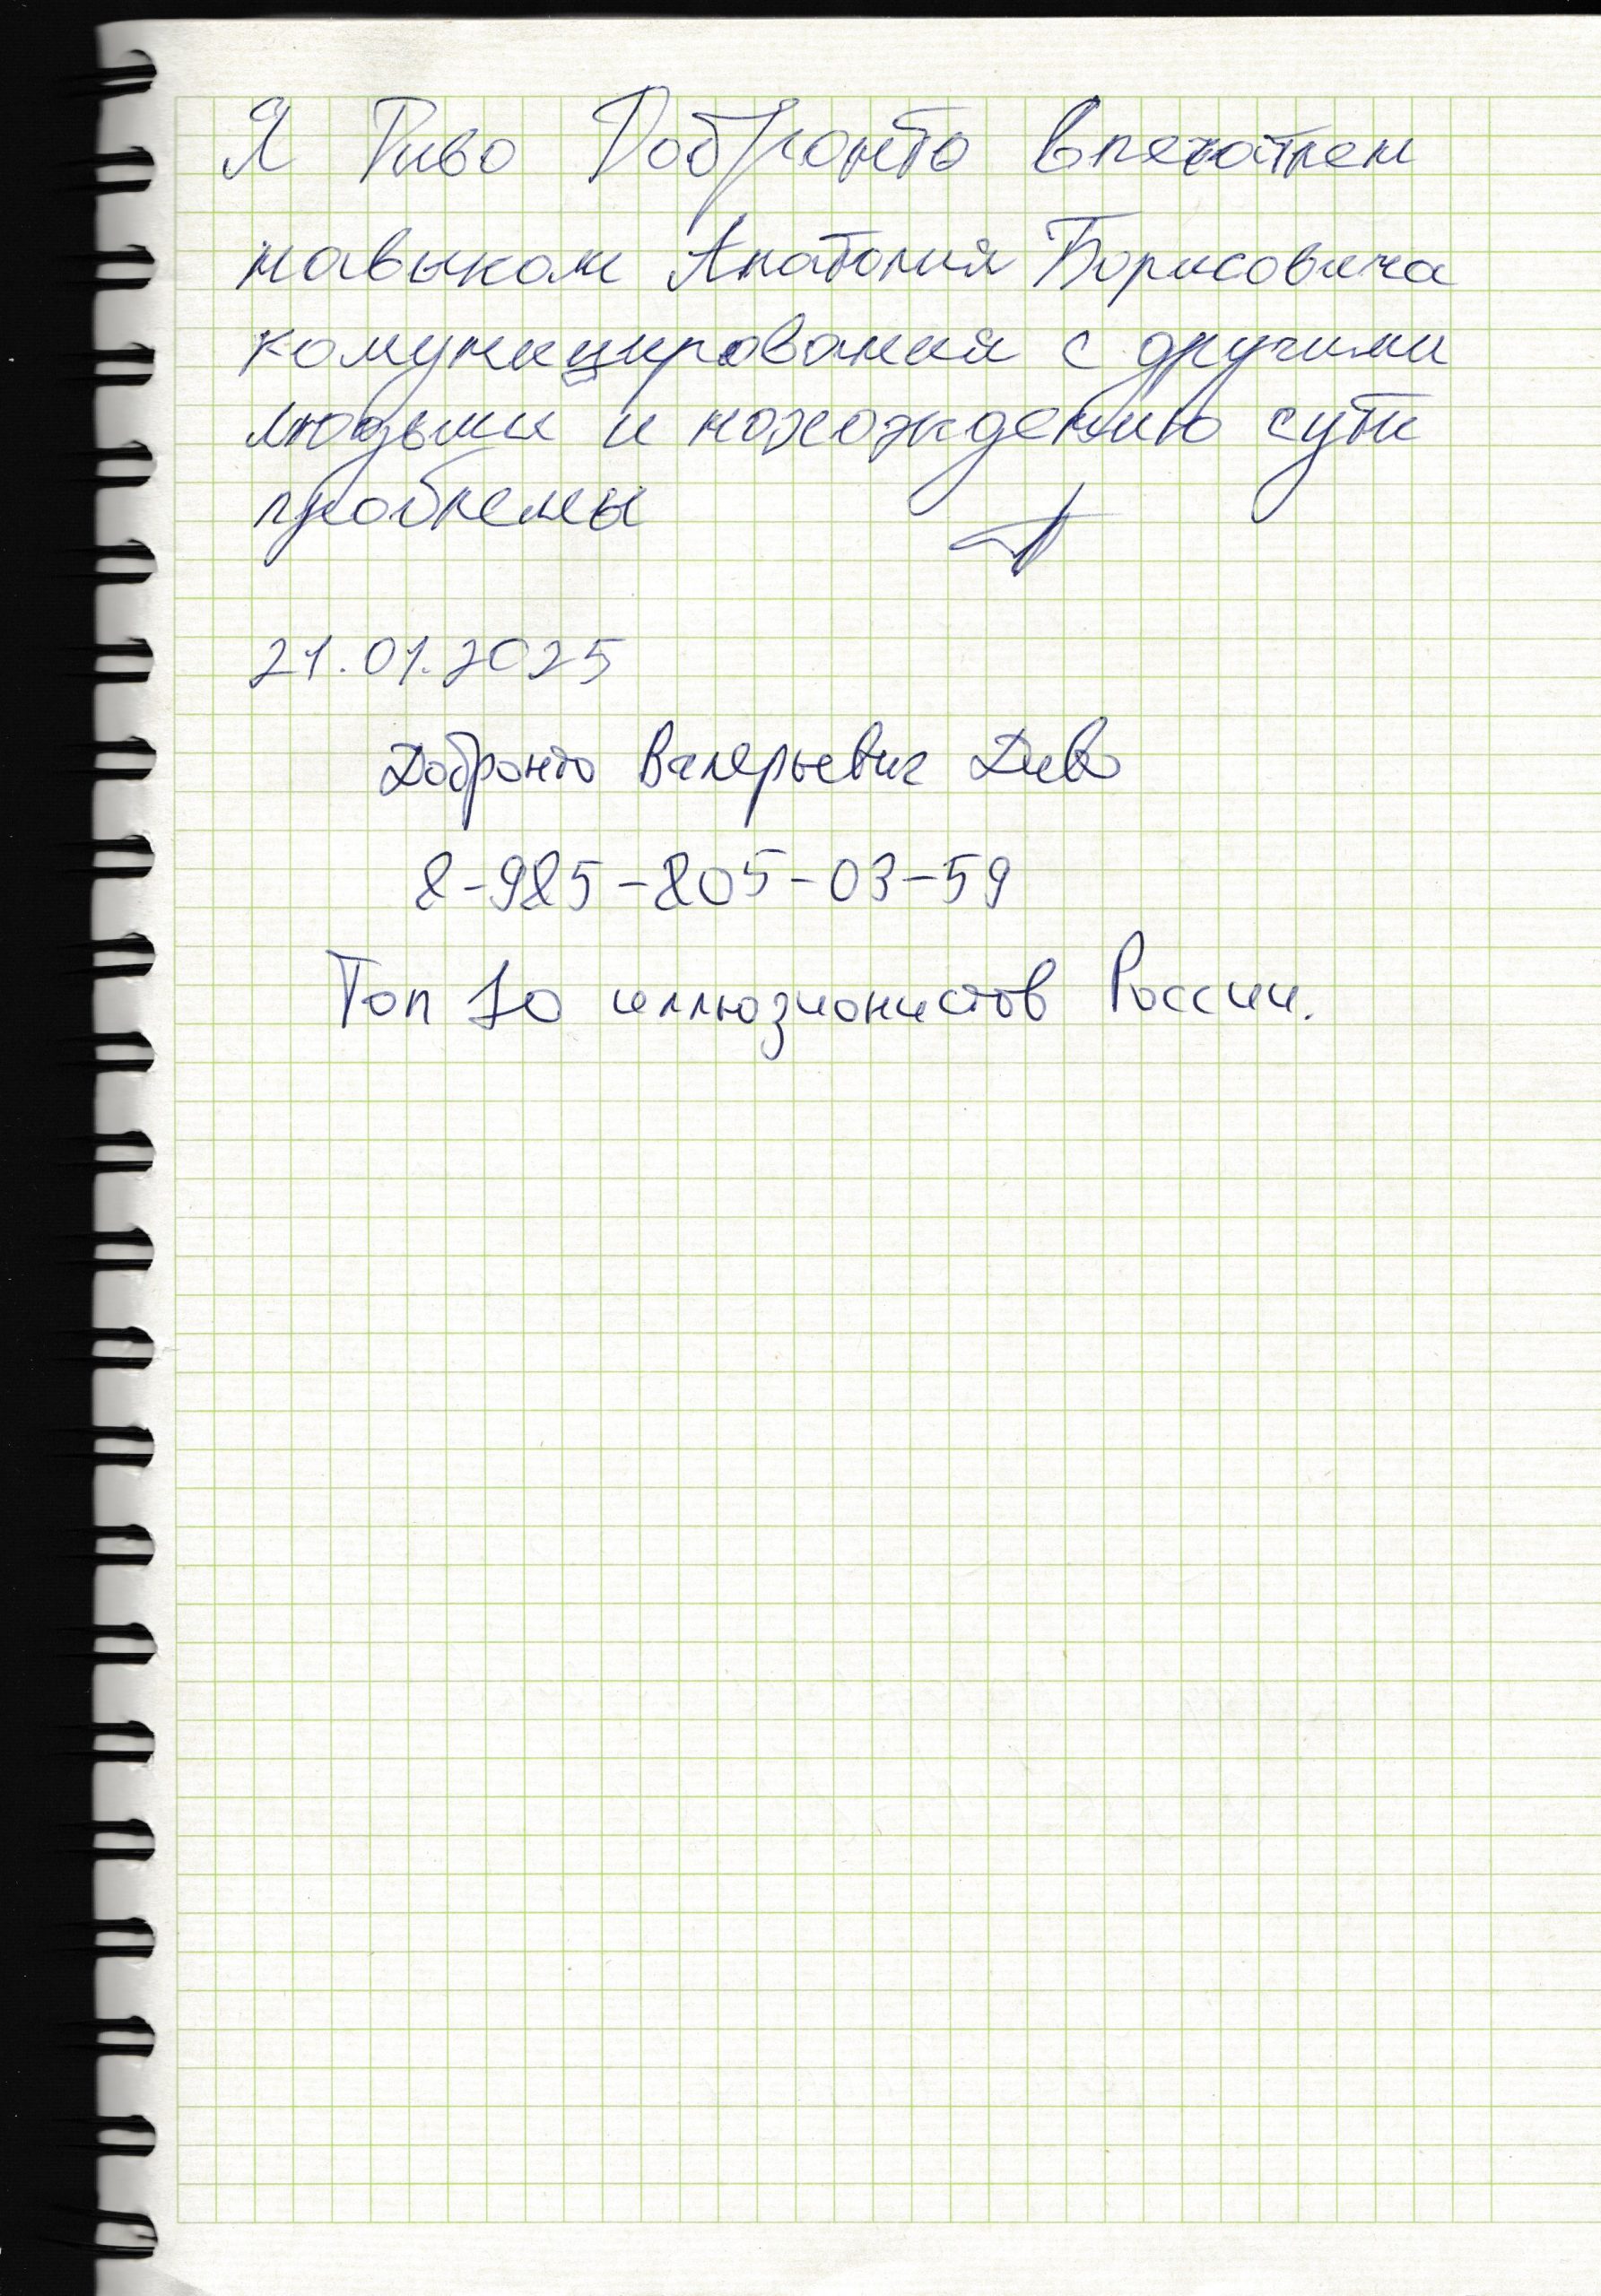 Я Диво Добронто впечатлен
навыком Анатолия Борисовича
комуницирования с другими
людьми и нахождению сути
проблемы
21.01.2025
Добронто Валерьевич Диво
8-985-805-03-59
Топ 10 иллюзионистов России.